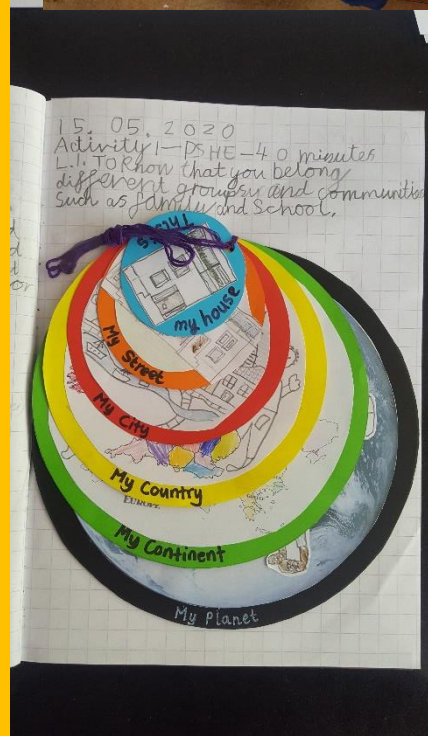 15.05.2020
Activity 1-PSHE-40 minutes
L.I. To know that you belong
different groups and communities
Such as family and School.
This is
my house
My Street
My City
My Country
EUROPE
My Continent
My Planet